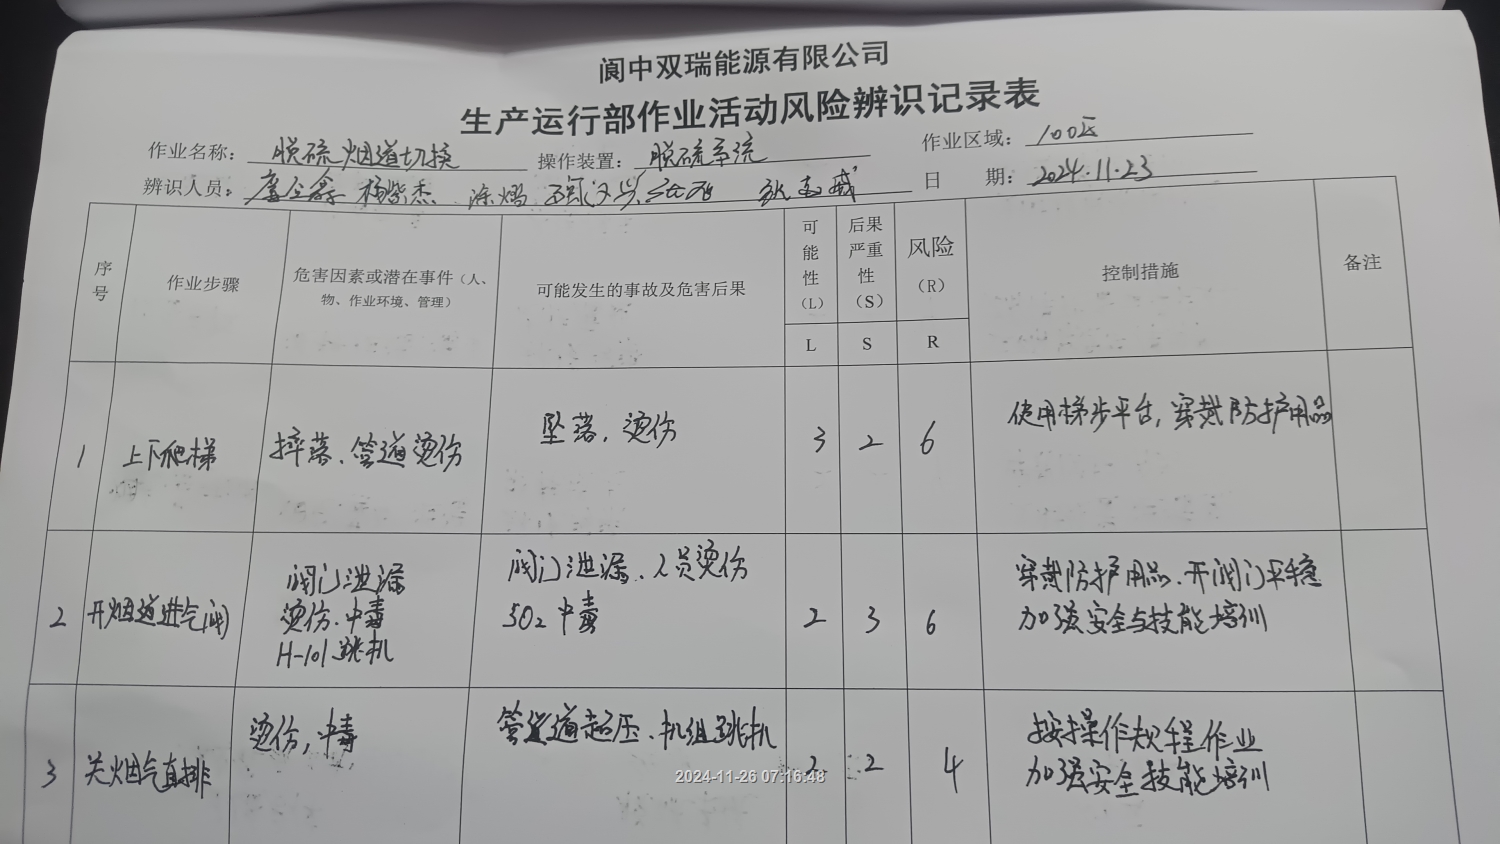 阆中双瑞能源有限公司
生产运行部作业活动风险辨识记录表
作业名称： 脱硫烟道切换 操作装置： 脱硫系统 作业区域： 100区
辨识人员： 杨紫杰 涂熠 日 期： 2024.11.23
序号 作业步骤 危害因素或潜在事件（人、物、作业环境、管理） 可能发生的事故及危害后果 可能性（L） 后果严重性（S） 风险（R） 控制措施 备注
L S R
1 上下爬梯 摔落、管道烫伤 坠落，烫伤 3 2 6 使用梯步平台，穿戴防护用品
2 开烟道进气阀 阀门泄漏 烫伤、中毒 H-101跳机 阀门泄漏、人员烫伤 SO2中毒 2 3 6 穿戴防护用品、开阀门平稳 加强安全与技能培训
3 关烟气直排 烫伤，中毒 管道超压、机组跳机 2 2 4 按操作规程作业 加强安全技能培训
2024-11-26 07:16:48